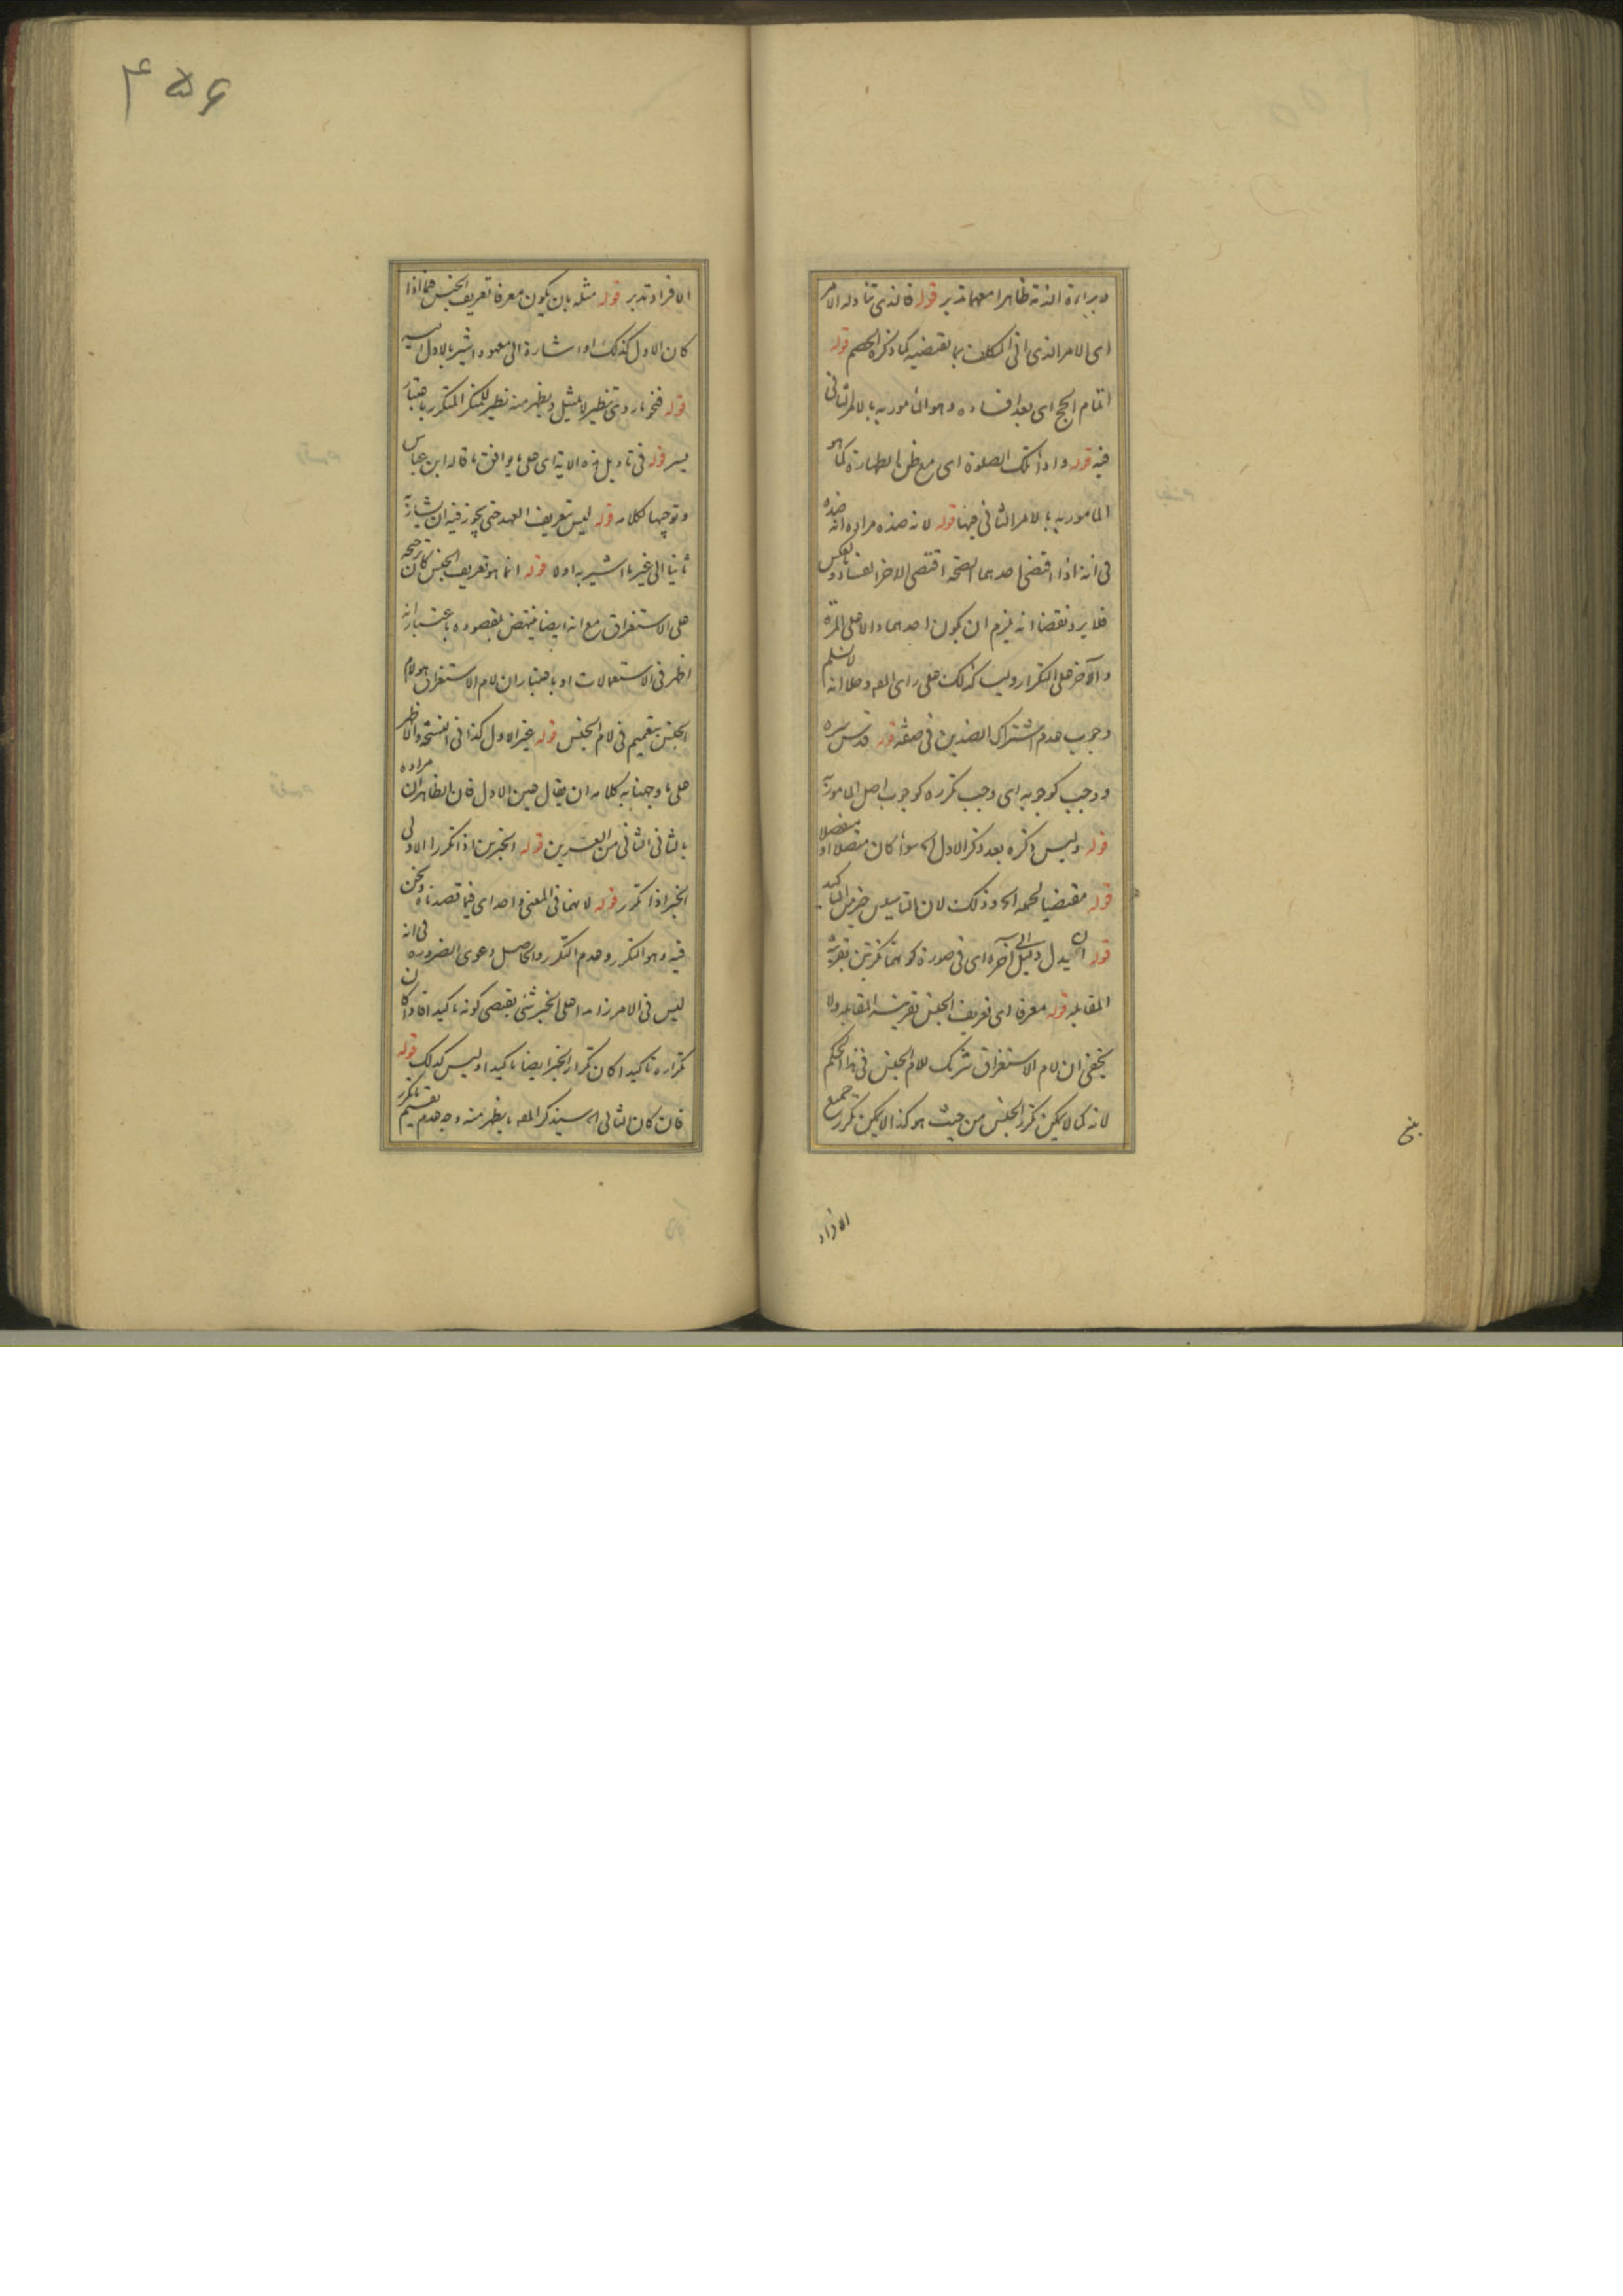 لابراءة الذمة ظاهرا معهما تدبر قوله فالذى تناوله الامر
اى الامر الذى اتى المكلف بما يقتضيه كما ذكره الخصم قوله
اتمام الحج اى بعد افساده وهو المأمور به بالامر الثانى
فيه قوله واداء تلك الصلوة اى مع ظن الطهارة كما هو
المأمور به بالامر الثانى جهنا قوله لانه ضده مراده انه ضده
فى انه اذا اقتضى احدهما الصحة اقتضى الاخر الفساد وبالعكس
فلا يرد نقضا انه يلزم ان يكون احدهما دالا على المرة
والآخر على التكرار وليسا كذلك على راى المصـ وحلا انه لا نسلم
وجوب عدم اشتراك الضدين فى صفة قوله قدس سره
ووجب كوجوبه اى وجب تكرره كوجوب اصل المأموربه
قوله وليس ذكره بعد ذكر الاول الخ سواء كان متصلا او منفصلا
قوله مقتضيا لحمله الخ وذلك لان التاسيس خير من التاكيد
قوله ان يدل دليل الى آخره اى فى صورة كونهما نكرتين بقرينة
المقابلة قوله معرفا اى تعريف الجنس بقرينة المقابلة ولا
يخفى ان لام الاستغراق شريك للام الجنس فى هذا الحكم
لانه كما لا يمكن تكرر الجنس من حيث هو كذا لا يمكن تكرر جميع
الافراد
۴۵۶
الافراد تدبر قوله مثله بان يكون معرفا تعريف الجنس فيما اذا
كان الاول كذلك او اشارة الى معهود اشير بالاول اليه
قوله فنحو ما روى تنظير لا تمثيل ويظهر منه نظير للمنكر المتكرر باعتبار
يسر قوله فى تاويل هذه الاية اى على ما يوافق ما قاله ابن عباس
وتوجيها لكلامه قوله ليس تعريف العهد حتى يجوز فيه ان يشار به
ثانيا الى غير ما اشير به اولا قوله انما هو تعريف الجنس كان ترجيحه
على الاستغراق مع انه ايضا ينتهض بمقصوده باعتبار انه
اظهر فى الاستعمالات او باعتبار ان لام الاستغراق هو لام
الجنس بتعميم فى لام الجنس قوله غير الاول كذا فى النسخ والاظهر
على ما وجهنا به كلامه ان يقال عين الاول فان الظاهر ان مراده
بالثانى الثانى من العسرين قوله الخبرين اذا تكررا الاولى
الخبر اذا تكرر قوله لانهما فى المعنى واحد اى فيما قصدناه ونحن
فيه وهو التكرر وعدم التكرر والحاصل دعوى الضرورة فى انه
ليس فى الامر زايدا على الخبر شئ يقتضى كونه تاكيدا فاذا كان
تكراره تاكيدا كان تكرار الخبر ايضا تاكيدا وليس كذلك قوله
فان كان الثانى الخ سيذكر المصـ ما يظهر منه وجه عدم تقسيم ما تكرر